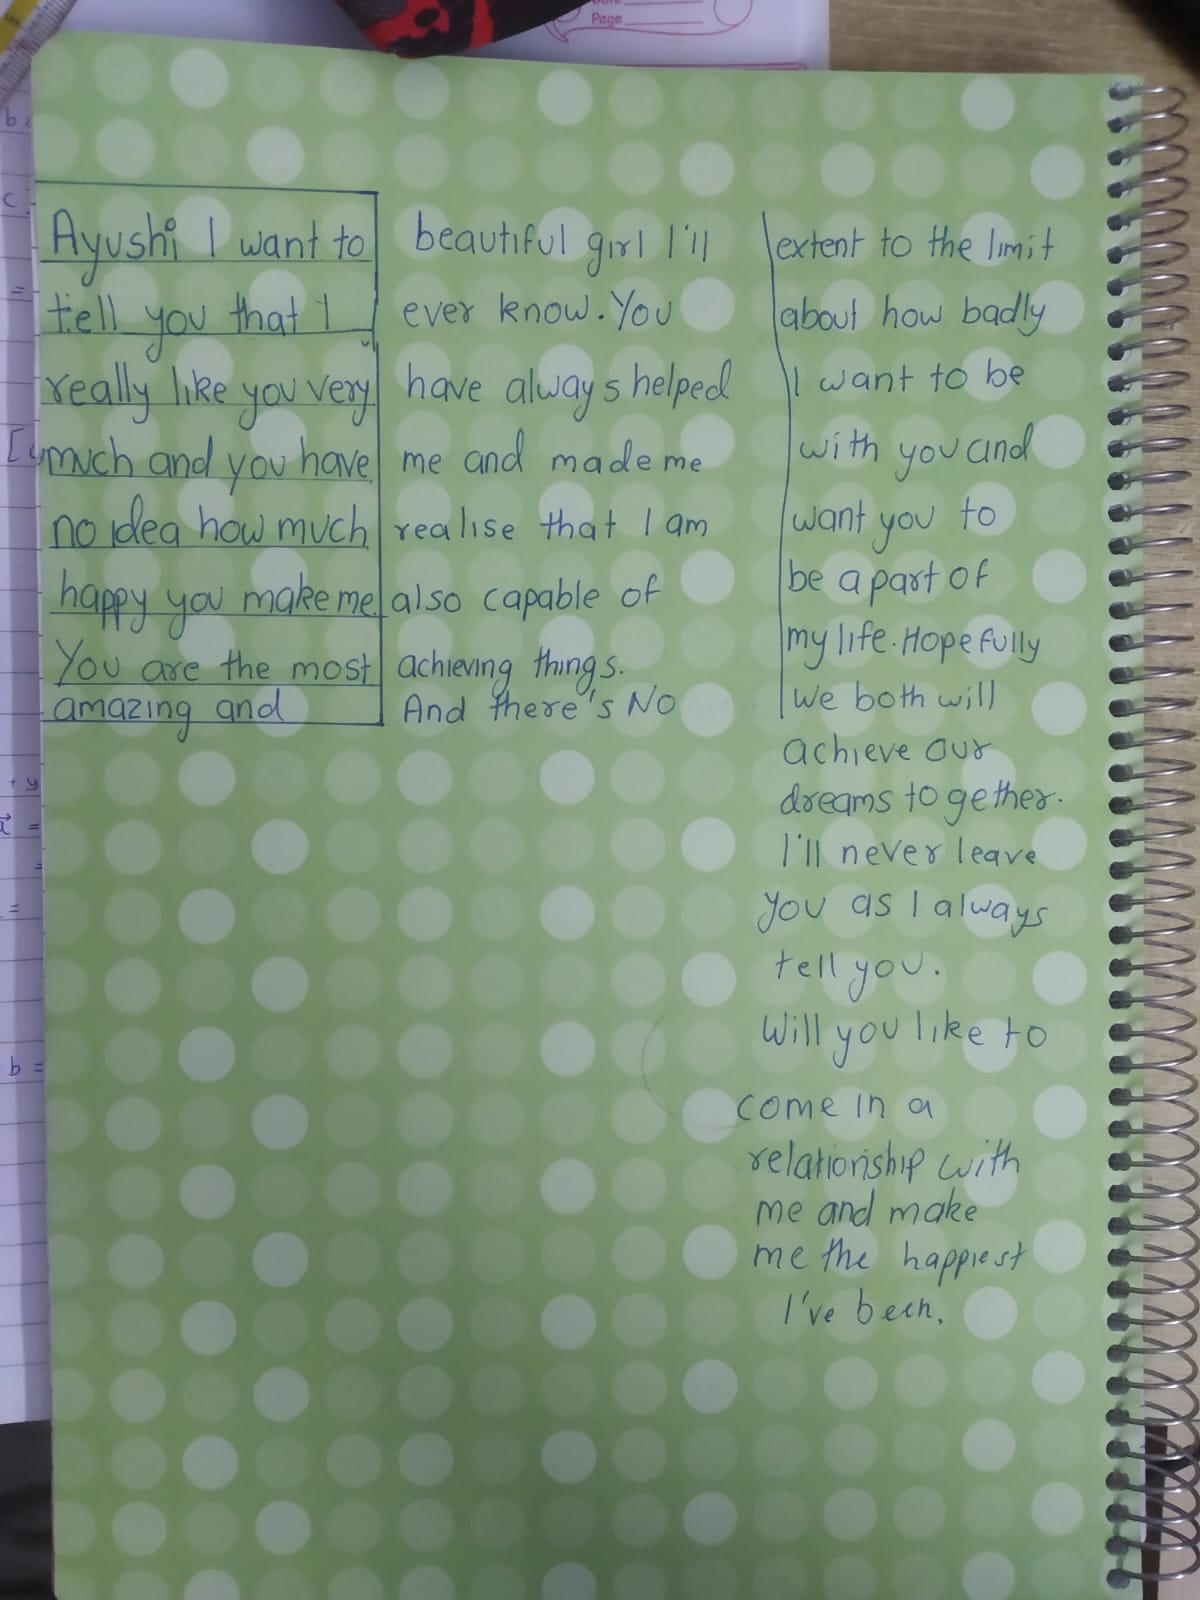 Page
Ayushi I want to
tell you that I
really like you very
much and you have
no idea how much
happy you make me.
You are the most
amazing and
beautiful girl I'll
ever know. You
have always helped
me and made me
realise that I am
also capable of
achieving things.
And there's No
extent to the limit
about how badly
I want to be
with you and
want you to
be a part of
my life. Hopefully
we both will
achieve our
dreams together.
I'll never leave
you as I always
tell you.
Will you like to
come in a
relationship with
me and make
me the happiest
I've been.